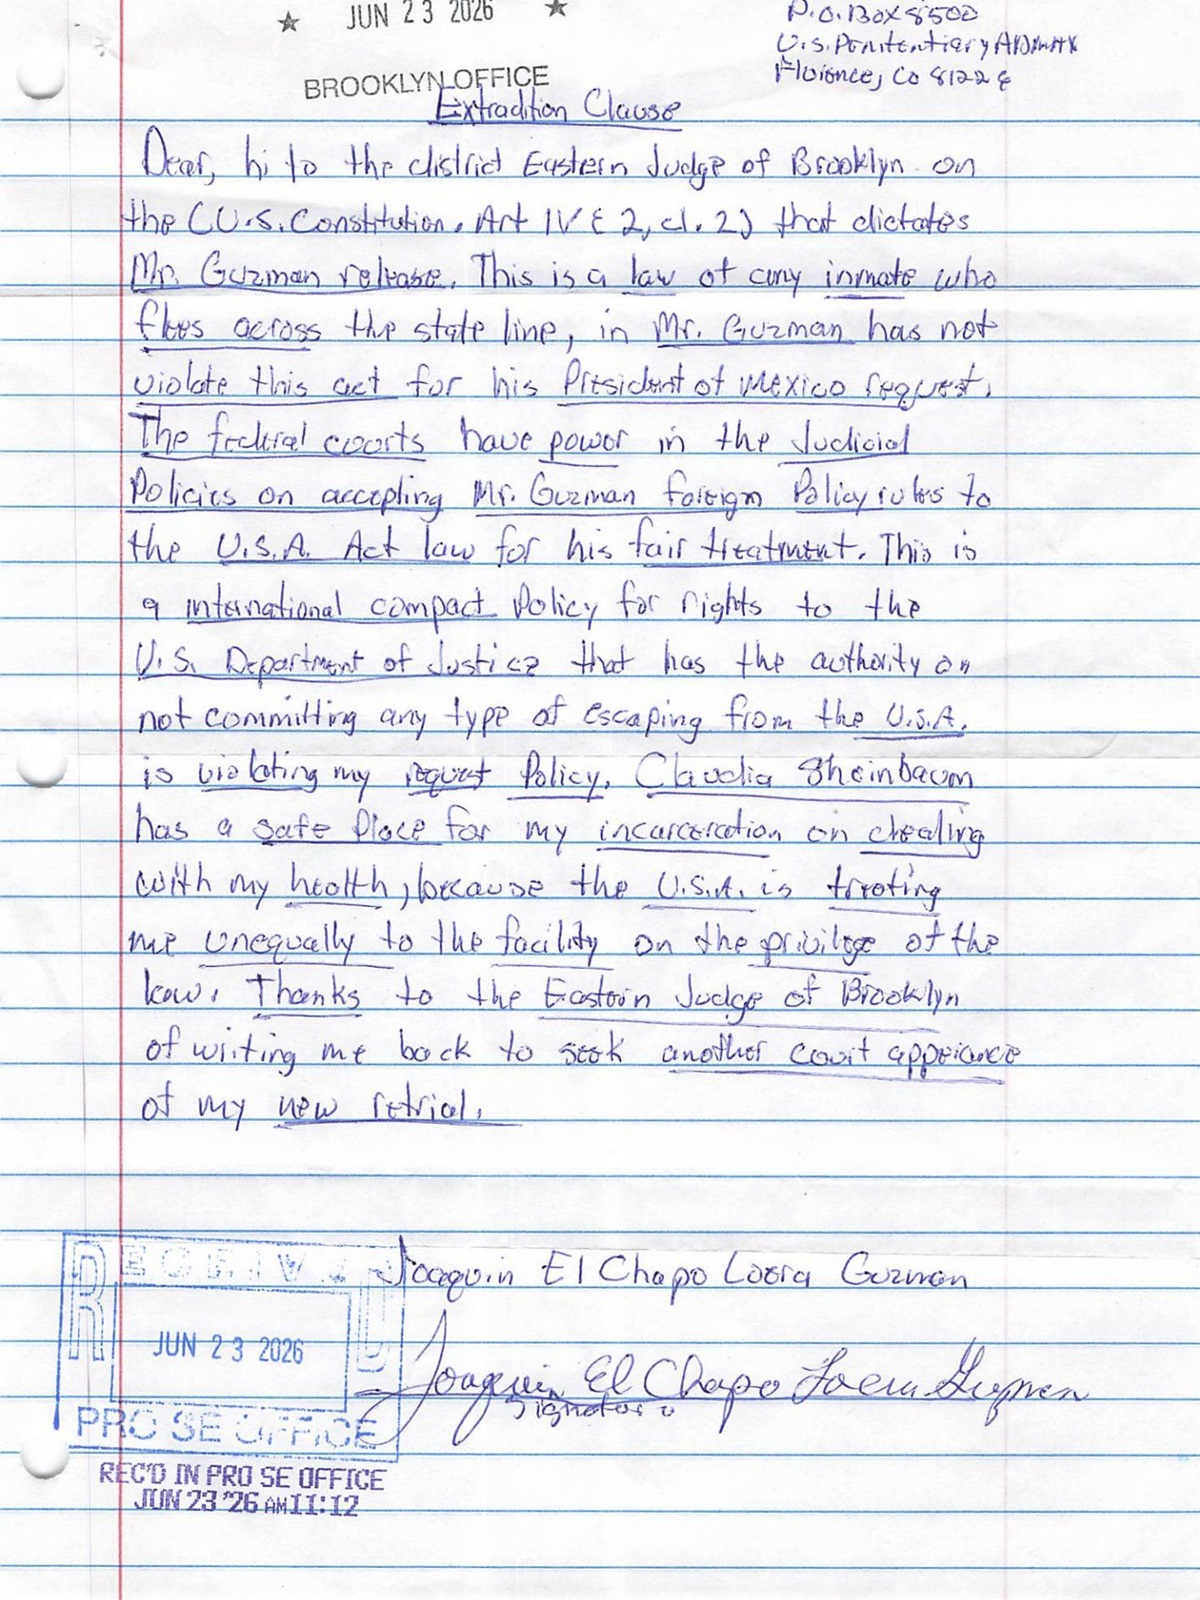 JUN 23 2026
BROOKLYN OFFICE
P.O. Box 8500
U.S. Penitentiary ADMAX
Florence, Co 81226
Extradition Clause
Dear, hi to the district Eastern Judge of Brooklyn on
the (U.S. Constitution. Art IV § 2, cl. 2) that dictates
Mr. Guzman release. This is a law of any inmate who
flees across the state line, in Mr. Guzman has not
violate this act for his President of Mexico request.
The federal courts have power in the Judicial
Policies on accepting Mr. Guzman foreign Policy rules to
the U.S.A. Act law for his fair treatment. This is
a international compact Policy for rights to the
U.S. Department of Justice that has the authority on
not committing any type of escaping from the U.S.A.
is violating my request Policy. Claudia Sheinbaum
has a safe place for my incarceration on dealing
with my health, because the U.S.A. is treating
me unequally to the facility on the privilege of the
law. Thanks to the Eastern Judge of Brooklyn
of writing me back to seek another court apperance
of my new retrial.
Joaquin El Chapo Loera Guzman
Joaquin El Chapo Loera Guzman
Signature
RECEIVED
JUN 23 2026
PRO SE OFFICE
REC'D IN PRO SE OFFICE
JUN 23 '26 AM 11:12